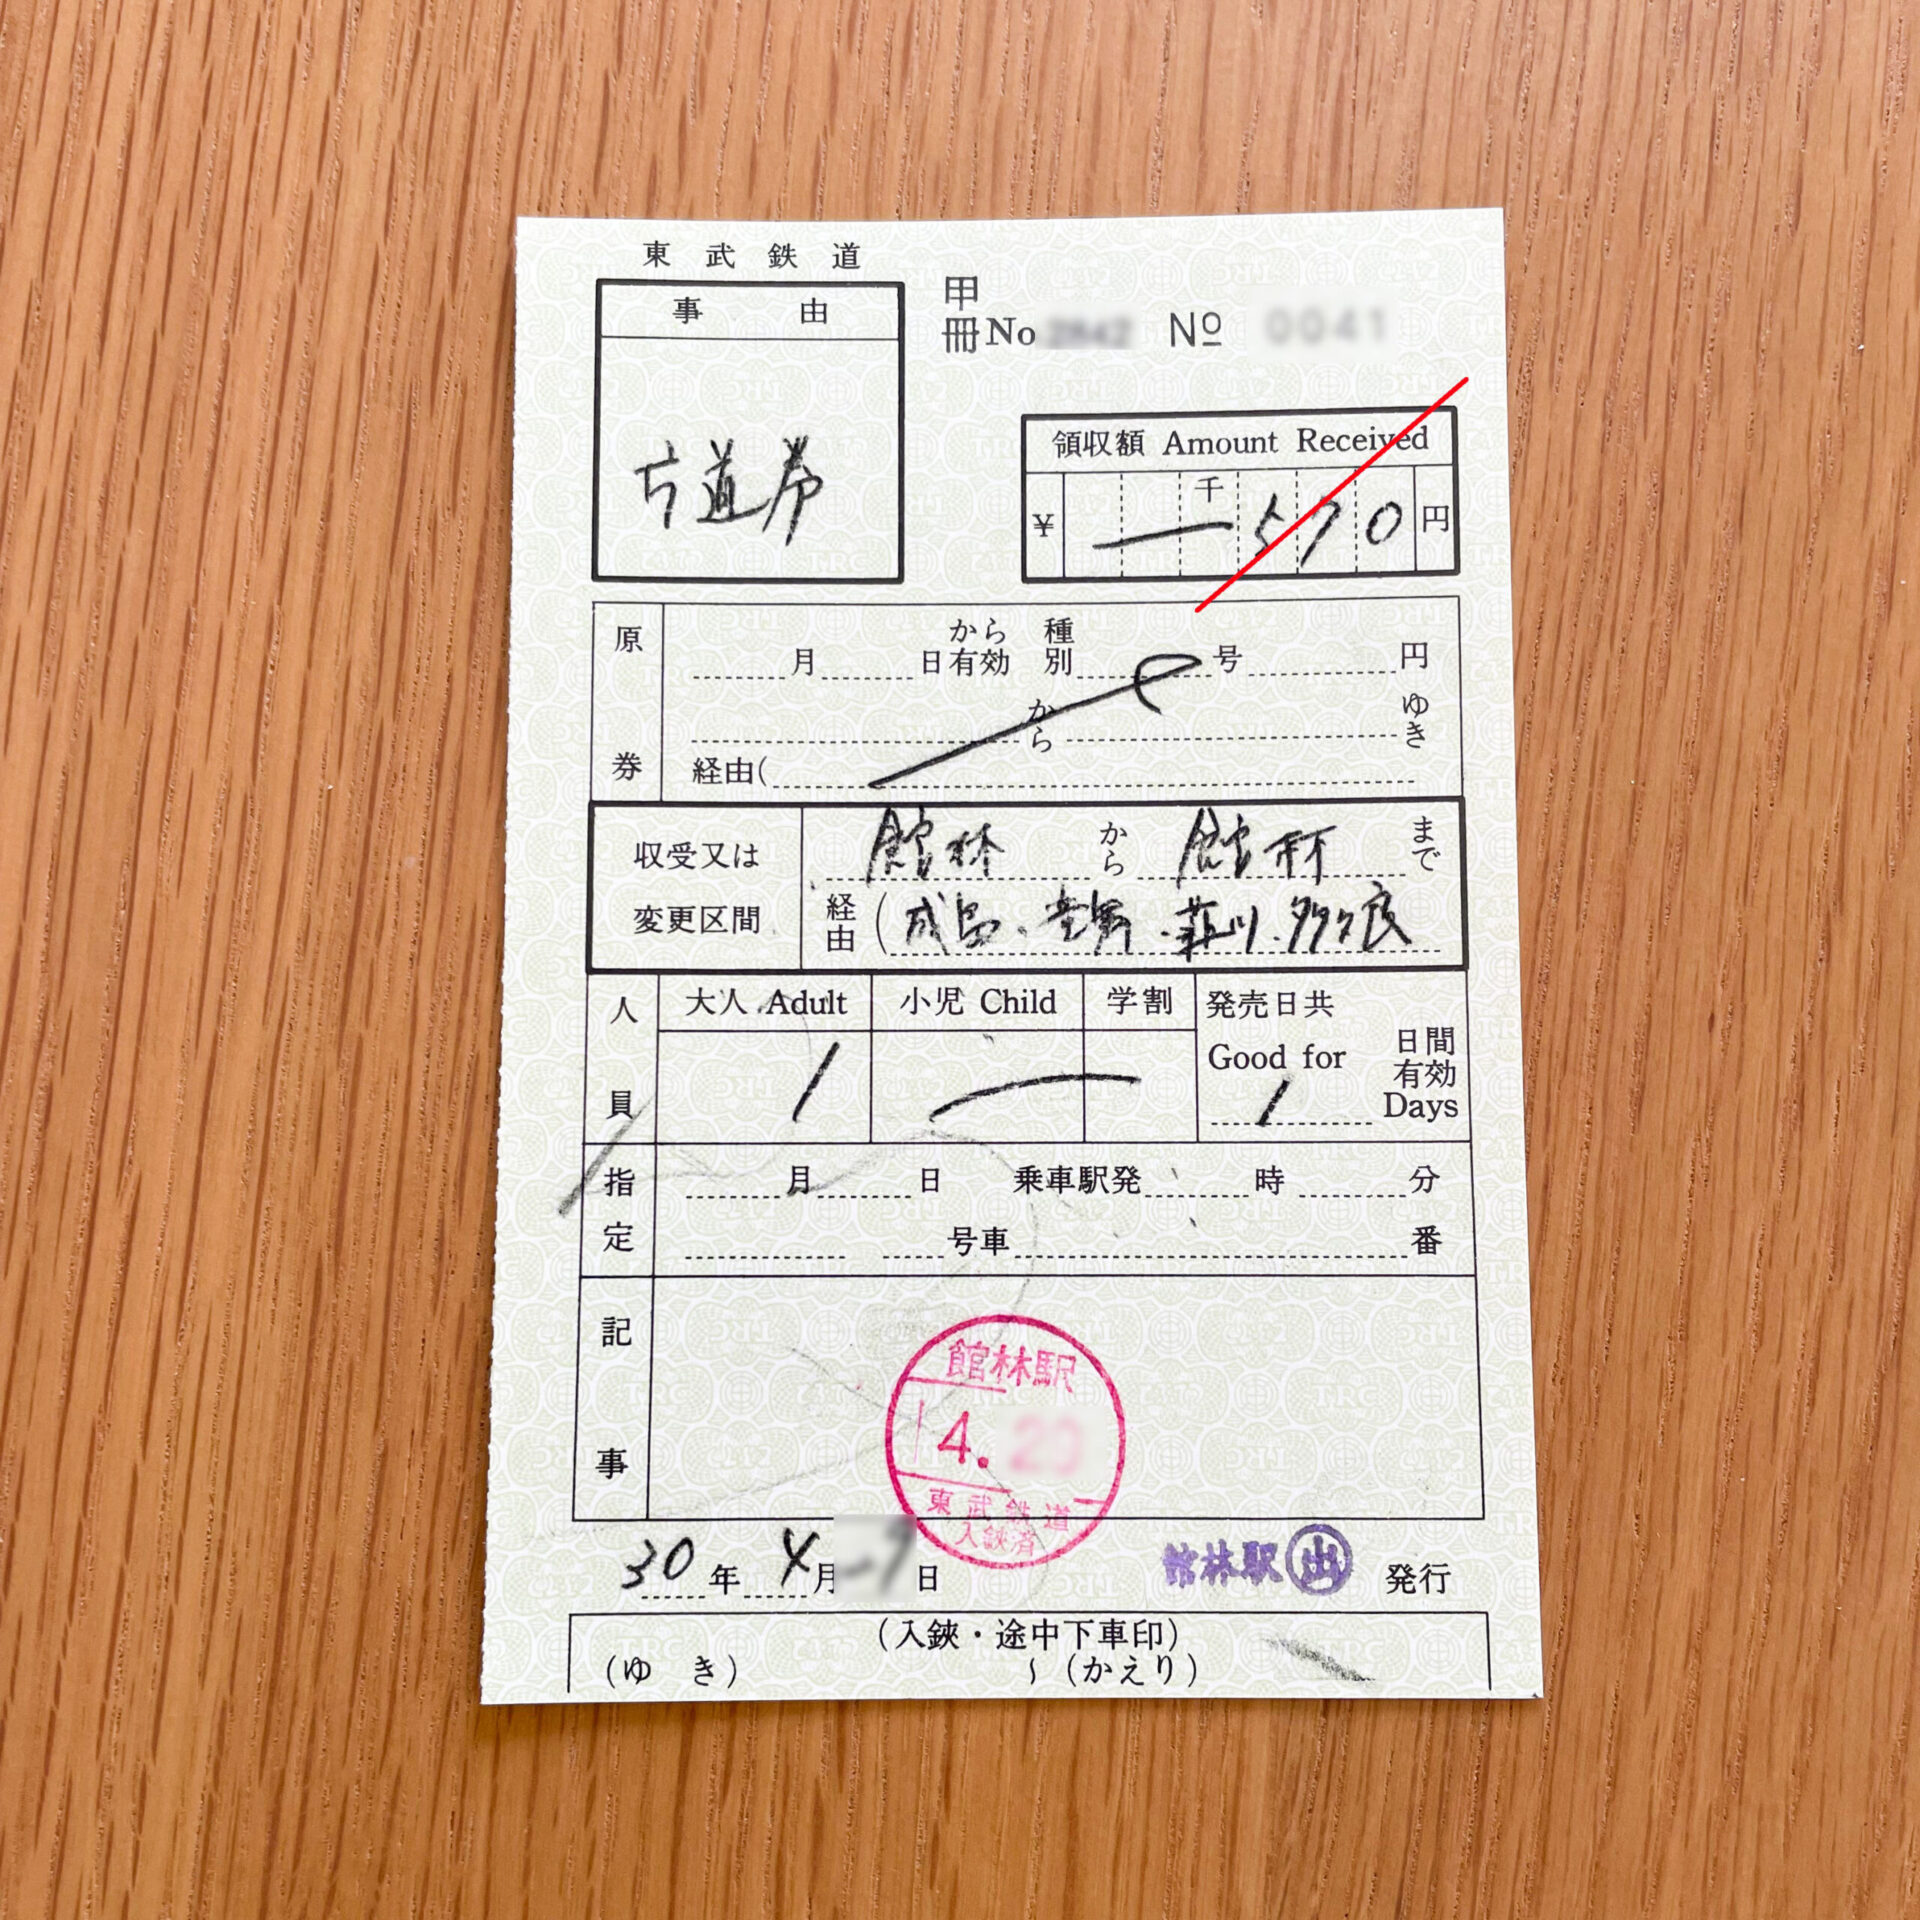 東武鉄道
事由
片道券
甲
冊No No
領収額 Amount Received
千
¥ 570 円
原券
月 日から有効 種別 号 円
から ゆき
経由(
収受又は変更区間
館林 から 館林 まで
経由 (成島・竜舞・韮川・多々良
人員
大人 Adult 小児 Child 学割
1
発売日共
Good for 1 日間有効 Days
指定
月 日 乗車駅発 時 分
号車 番
記事
館林駅
4.
東武鉄道
入鋏済
30年 4月 日
館林駅 出 発行
(入鋏・途中下車印)
(ゆき) ~(かえり)